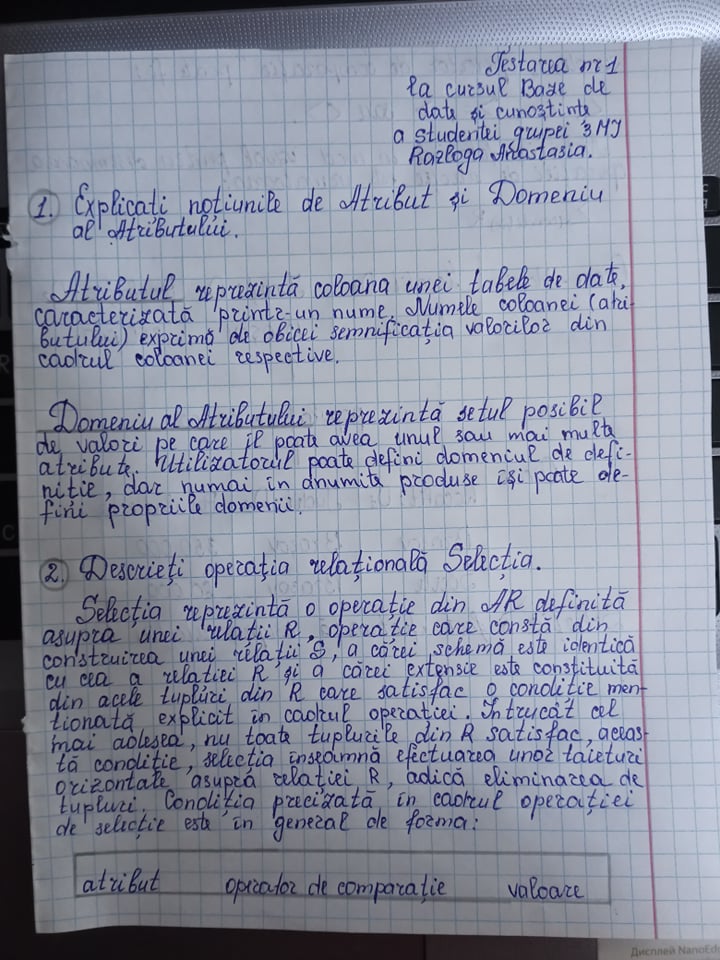 Testarea nr 1
la cursul Baze de
date și cunoștințe
a studentei grupei 3MI
Razloga Anastasia.
1. Explicați noțiunile de Atribut și Domeniu
al Atributului.
Atributul reprezintă coloana unei tabele de date,
caracterizată printr-un nume. Numele coloanei (atri-
butului) exprimă de obicei semnificația valorilor din
cadrul coloanei respective.
Domeniu al Atributului reprezintă setul posibil
de valori pe care îl poate avea unul sau mai multe
atribute. Utilizatorul poate defini domeniul de defi-
niție, dar numai în anumite produse își poate de-
fini propriile domenii.
2. Descrieți operația relațională Selecția.
Selecția reprezintă o operație din AR definită
asupra unei relații R, operație care constă din
construirea unei relații S, a cărei schemă este identică
cu cea a relației R și a cărei extensie este constituită
din acele tupluri din R care satisfac o condiție men-
ționată explicit în cadrul operației. Întrucât cel
mai adesea, nu toate tuplurile din R satisfac, aceas-
tă condiție, selecția înseamnă efectuarea unor tăieturi
orizontale asupra relației R, adică eliminarea de
tupluri. Condiția precizată în cadrul operației
de selecție este în general de forma:
atribut operator de comparație valoare
Дисплей NanoEd